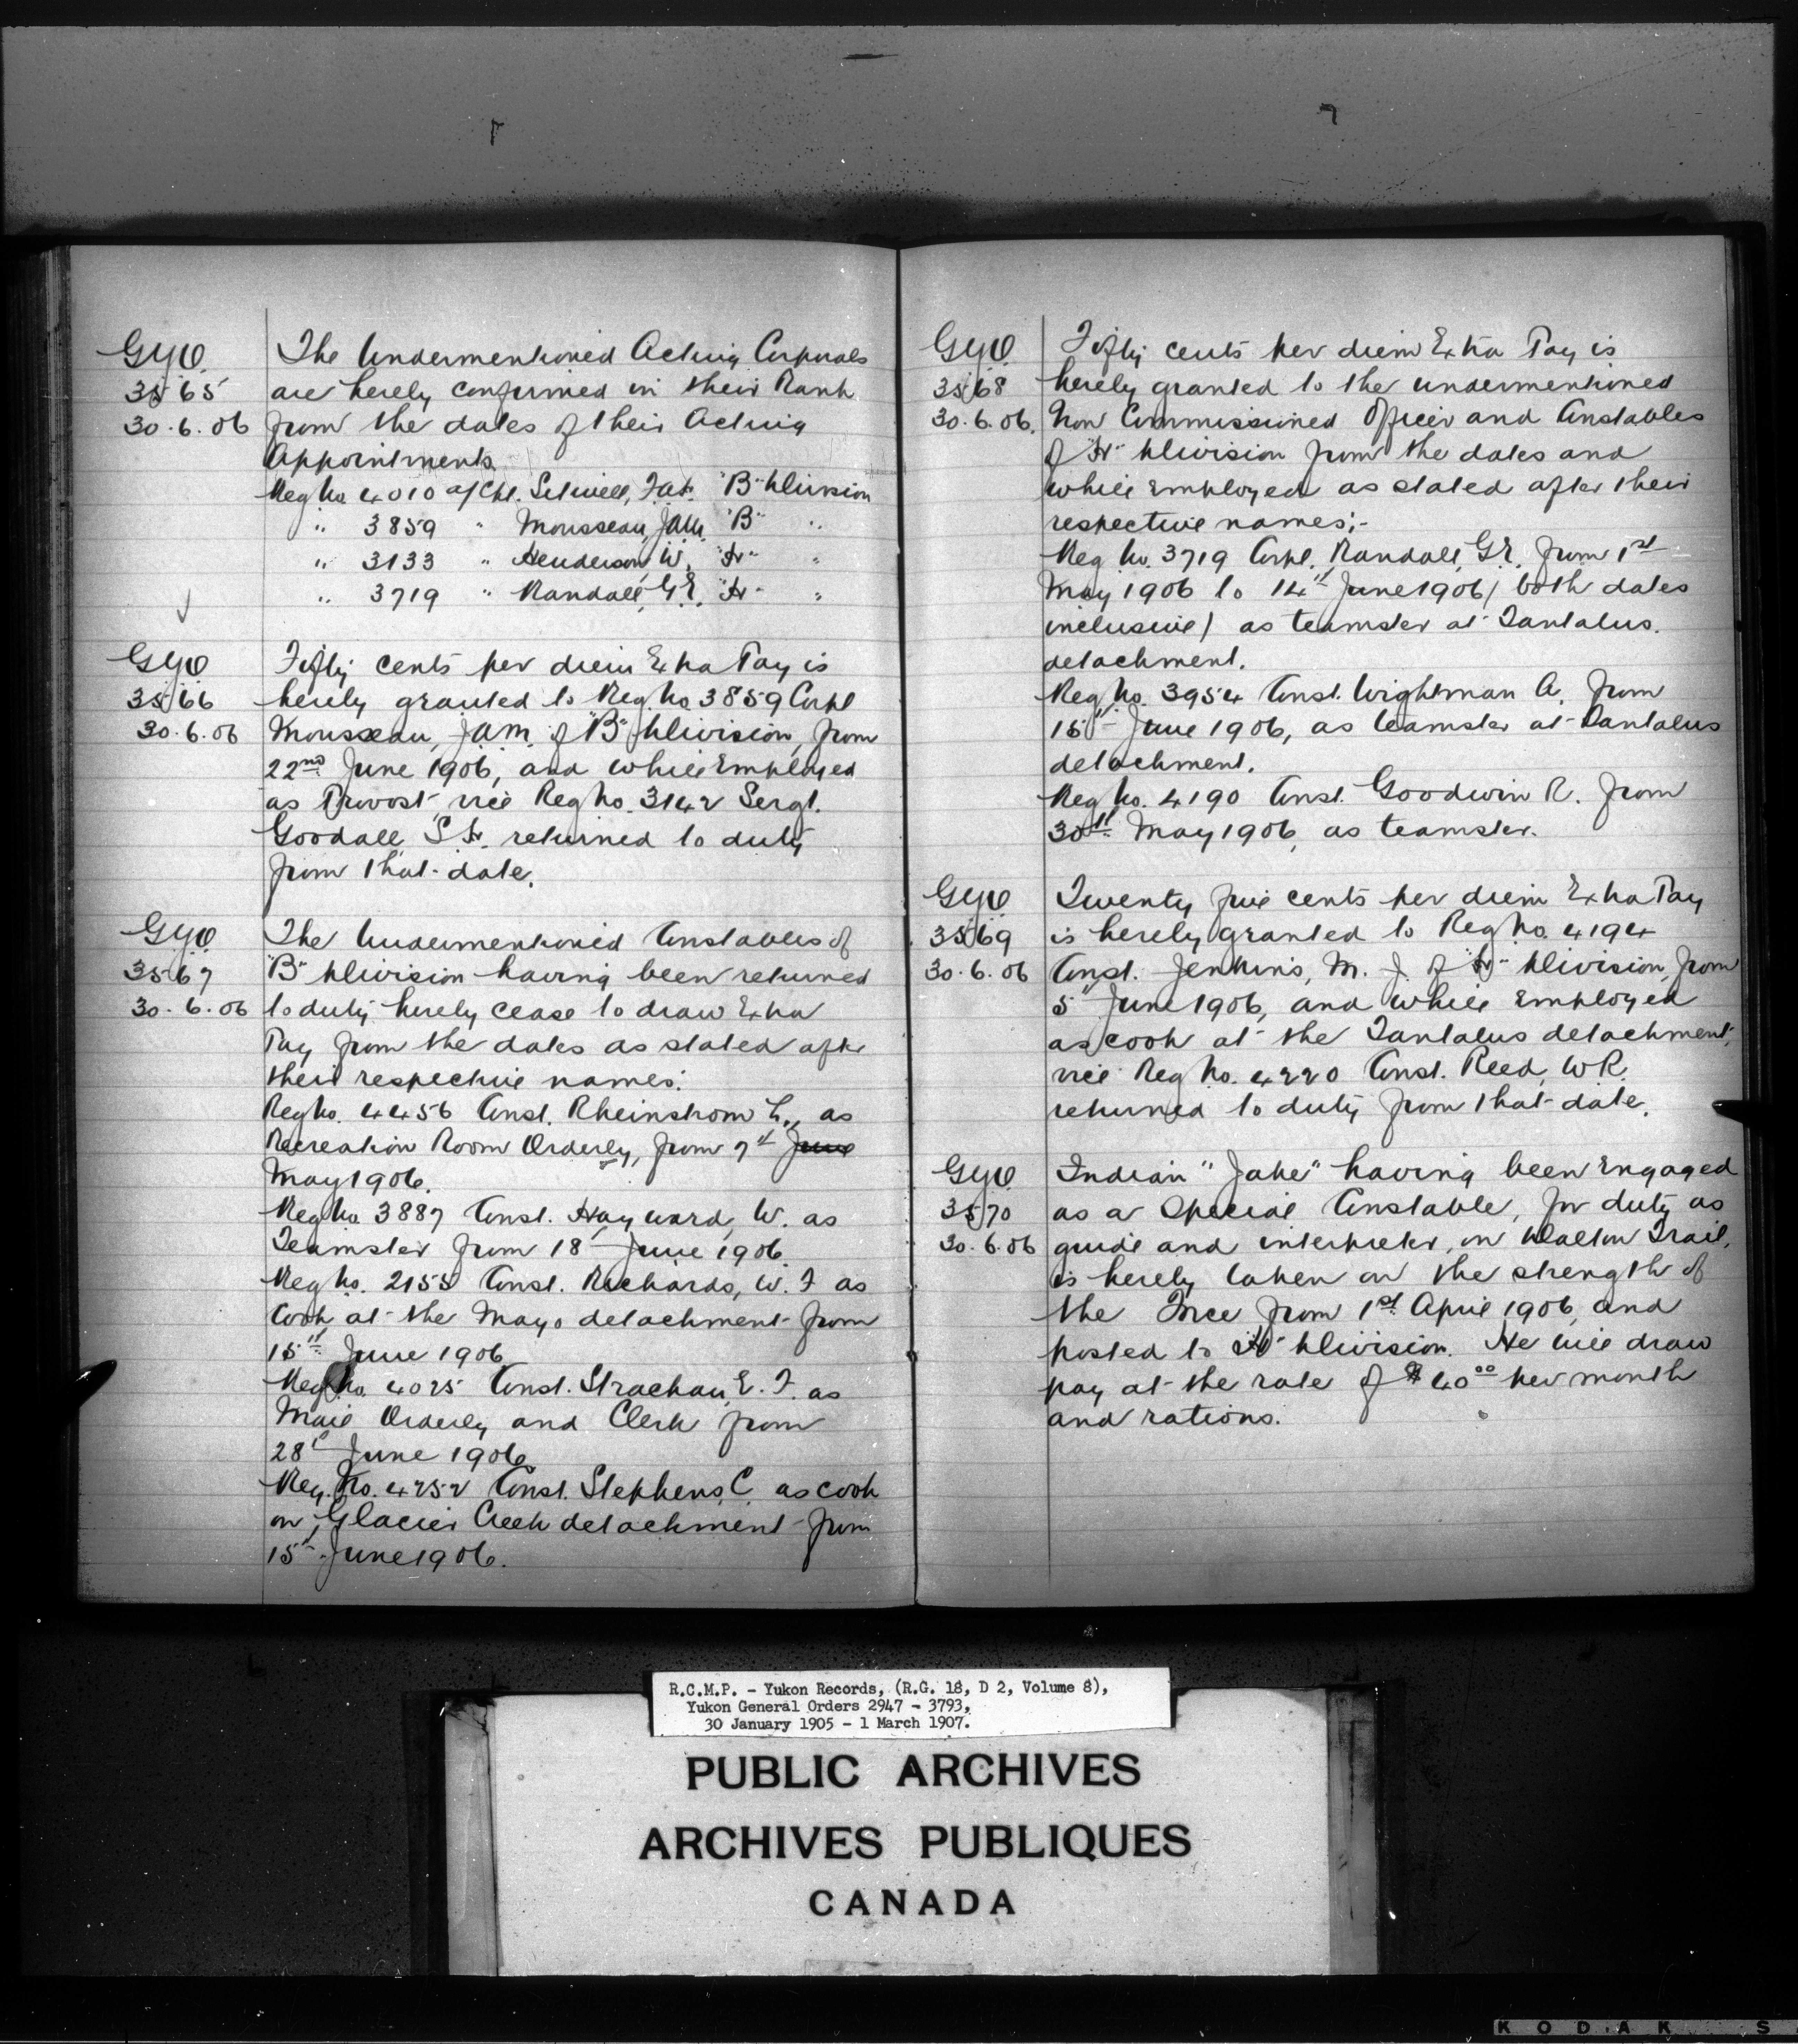 GYO
3565
30.6.06
The Undermentioned Acting Corporals
are hereby confirmed in their Rank
from the dates of their Acting
Appointments.
Reg No. 4010 a/Cpl. "B" Division
" 3859 " Mousseau, J.A.M. "B" "
" 3133 " Henderson W. "H" "
" 3719 " Randall, G.E. "H" "
GYO
3566
30.6.06
Fifty cents per diem Extra Pay is
hereby granted to Reg. No. 3859 Corpl
Mousseau, J.A.M. of "B" Division, from
22nd June 1906, and while Employed
as Provost vice Reg No. 3142 Sergt.
Goodall, S.H. returned to duty
from that date.
GYO
3567
30.6.06
The Undermentioned Constables of
"B" Division having been returned
to duty hereby cease to draw Extra
Pay from the dates as stated after
their respective names.
Reg No. 4456 Const. Rheinstrom L., as
Recreation Room Orderly, from 7th June
May 1906.
Reg No. 3887 Const. Hayward, W. as
Teamster from 18th June 1906.
Reg No. 2155 Const. Richards, W. F as
Cook at the Mayo detachment from
15th June 1906
Reg No. 4025 Const. Strachan, E. F. as
Mail Orderly and Clerk from
28th June 1906
Reg. No. 4252 Const. Stephens, C. as cook
on Glacier Creek detachment from
15th June 1906.
GYO
3568
30.6.06.
Fifty cents per diem Extra Pay is
hereby granted to the undermentioned
Non Commissioned Officer and Constables
of "H" Division from the dates and
while Employed as stated after their
respective names;-
Reg No. 3719 Corpl. Randall, G.E. from 1st
May 1906 to 14th June 1906 (both dates
inclusive) as teamster at Tantalus.
detachment.
Reg No. 3954 Const. Wightman A. from
15th June 1906, as teamster at Tantalus
detachment.
Reg No. 4190 Const. Goodwin R. from
30th May 1906, as teamster.
GYO
3569
30.6.06
Twenty five cents per diem Extra Pay
is hereby granted to Reg No. 4194
Const. Jenkins, M. J. of "H" Division, from
5th June 1906, and while Employed
as cook at the Tantalus detachment,
vice Reg No. 4220 Const. Reed, W.R.
returned to duty from that date.
GYO
3570
30.6.06
Indian "Jake" having been Engaged
as a Special Constable, for duty as
guide and interpreter, on Dalton Trail,
is hereby taken on the strength of
the Force from 1st April 1906, and
posted to "H" Division. He will draw
pay at the rate of $40.00 per month
and rations.
R.C.M.P. - Yukon Records, (R.G. 18, D 2, Volume 8),
Yukon General Orders 2947 - 3793,
30 January 1905 - 1 March 1907.
PUBLIC ARCHIVES
ARCHIVES PUBLIQUES
CANADA
KODAK S